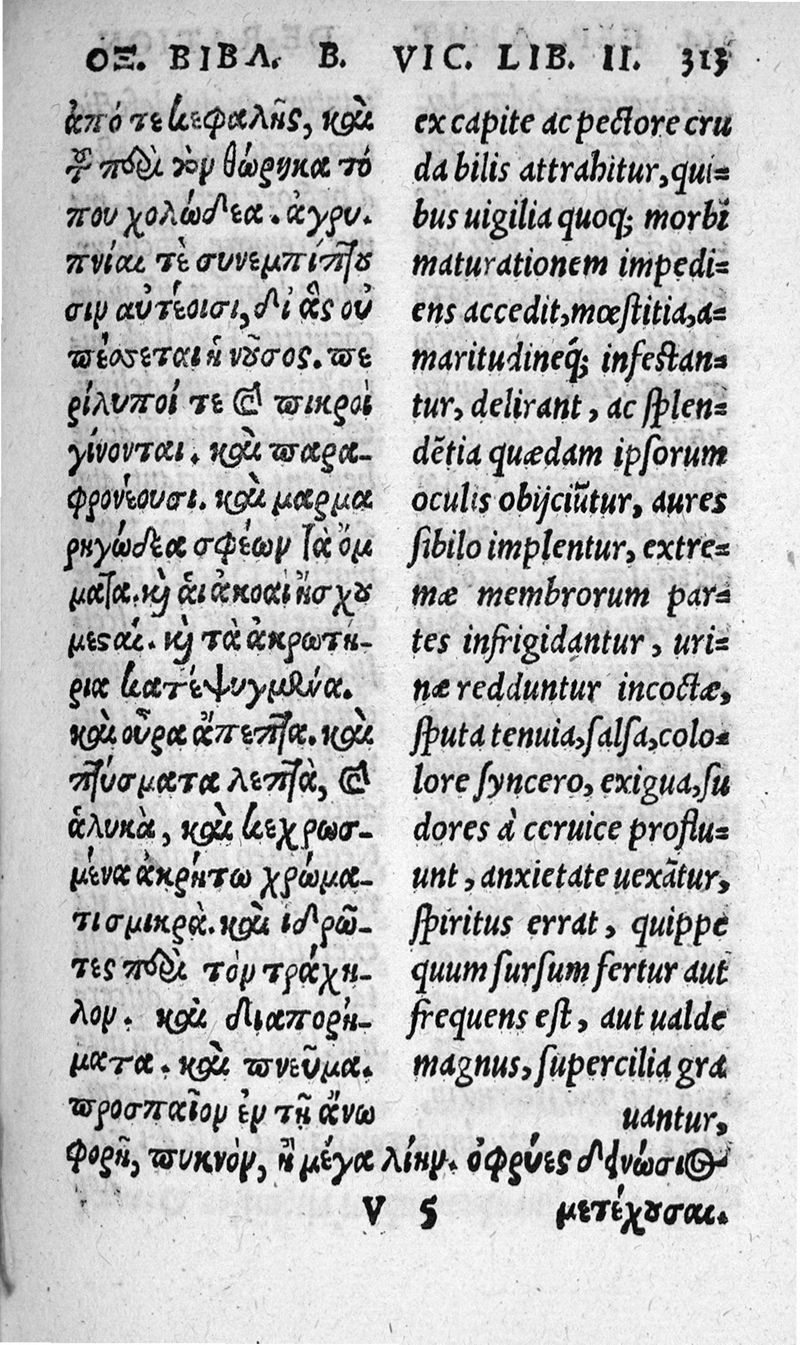 ΟΞ. ΒΙΒΛ. Β. VIC. LIB. II. 313
ἀπό τε κεφαλῆς, καὶ
τῶν περὶ τὸν θώρηκα τό
που χολώδεα. ἀγρυ-
πνίαι τὲ συνεμπίπτου
σιν αὐτέοισι, δι ἃς οὐ
πέσσεται ἡ νοῦσος. πε
ρίλυποί τε καὶ πικροὶ
γίνονται. καὶ παρα-
φρονέουσι. καὶ μαρμα
ρηγώδεα σφέων τὰ ὄμ
ματα. καὶ ἁι ἀκοαὶ ἤσχου
μεσαί. καὶ τὰ ἀκρωτή-
ρια κατέψυγμένα.
καὶ οὖρα ἄπεπτα. καὶ
πτύσματα λεπτὰ, καὶ
ἁλυκὰ, καὶ κεχρωσ-
μένα ἀκρήτω χρώμα-
τι σμικρὰ. καὶ ἱδρῶ-
τες περὶ τὸν τράχη-
λον. καὶ διαπορή-
ματα. καὶ πνεῦμα.
προσπαῖον ἐν τῇ ἄνω
φορῇ, πυκνὸν, ἢ μέγα λίην. ὀφρύες
ex capite ac pectore cru
da bilis attrahitur, qui=
bus uigilia quoq; morbi
maturationem impedi=
ens accedit, mœstitia, a=
maritudineq́; infestan=
tur, delirant, ac splen=
dẽtia quædam ipsorum
oculis obijciũtur, aures
sibilo implentur, extre=
mæ membrorum par=
tes infrigidantur, uri=
næ redduntur incoctæ,
sputa tenuia, salsa, colo=
lore syncero, exigua, su
dores à ceruice proflu=
unt, anxietate uexãtur,
spiritus errat, quippe
quum sursum fertur aut
frequens est, aut ualde
magnus, supercilia gra
uantur,
V 5 μετέχουσαι.